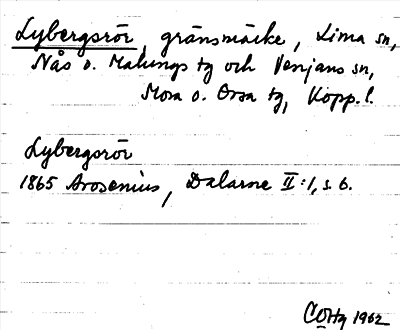 Lybergsrör, gränsmärke, Lima sn,
Nås o. Malungs tg och Venjans sn,
Mora o. Orsa tg, Kopp. l.
Lybergsrör
1865 Arosenius, Dalarne II:1, s. 6.
COHg 1962